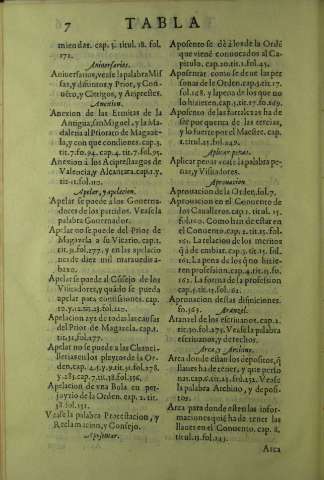 7 TABLA
miendar. cap. 5. titul. 18. fol.
172.
Aniversarios.
Aniversarios, vease la palabra Mis
sas, y difuntos, y Prior, y Con-
vẽto, y Clerigos, y Ancestes.
Anexion.
Anexion de las Ermitas de la
Antigua, san Miguel, y la Ma-
dalena al Priorato de Magazè-
la, y con que condiciones. cap. 3.
tit. 7. fo. 94. cap. 4. tit. 7. fol. 95.
Anexion à los Aciprestazgos de
Valencia, y Alcantara. capi. 2.
tit. 11. fol. 112.
Apelar, y apelacion.
Apelar se puede à los Governa-
dores de los partidos. Vease la
palabra Governador.
Apelar no se puede del Prior de
Magazela a su Vicario. cap. 1.
tit. 31. fol. 277. y en las apelacio
nes de diez mil maravedis a-
baxo.
Apelar se puede al Cõsejo de los
Visitadores, y quãdo se pueda
apelar para comissiones. cap.
Apelacion aya de todas las causas
del Prior de Magazela. cap. 1.
tit. 31. fol. 277.
Apelar no se puede a las Chanci-
llerias en los pleytos de la Or-
den. cap. 4. 5. y 7. tit. 31. fol. 278.
y 283. cap. 7. tit. 38. fol. 356.
Apelacion de una Bula en per-
juyzio de la Orden. cap. 2. tit.
38. fol. 351.
Vease la palabra Protestacion, y
Reclamacion, y Consejo.
Aposentar.
Aposento se dè à los de la Ordẽ
que vienẽ convocados al Ca-
pitulo. cap. 20. tit. 1. fol. 45.
Aposentar como se deve a las per
sonas de la Orden. cap. 5. tit. 17.
fol. 168. y la pena de los que no
lo hizieren. cap. 5. tit. 17. fo. 169.
Aposento de las fortalezas ha de
ser por quenta de las cercias,
y lo suerte por el Maestre. cap.
1. titul. 25. fol. 249.
Aplicar penas.
Aplicar penas vease la palabra pe-
nas, y Visitadores.
Aprovacion.
Aprovacion de la Orden. fol. 7.
Aprovacion en el Convento de
los Cavalleros. cap. 1. titul. 15.
fol. 150. Como han de estar en
el Convento. cap. 2. tit. 15. fol.
161. La relacion de los meritos
q̃ ha de embiar. cap. 3. tit. 15. fol.
161. La pena de los q̃ no hizie-
ren profession. cap. 4. tit. 15. fo.
162. La forma de la profession
cap. 4. tit. 15. fol. 162.
Aprovacion destas difiniciones.
fo. 365.
Aranzel.
Aranzel de los escrivanos. cap. 2.
tit. 30. fol. 275. Vease la palabra
escrivanos, y derechos.
Arca, y Archivo.
Arca donde estan los depositos, q̃
llaves ha de tener, y que perso
nas. cap. 6. tit. 13. fol. 132. Vease
la palabra Archivo, y depo-
sitos.
Arca para donde esten los infor-
maciones quiẽ ha de tener las
llaves en el Convento. cap. 8.
titul. 13. fol. 143.
Arca